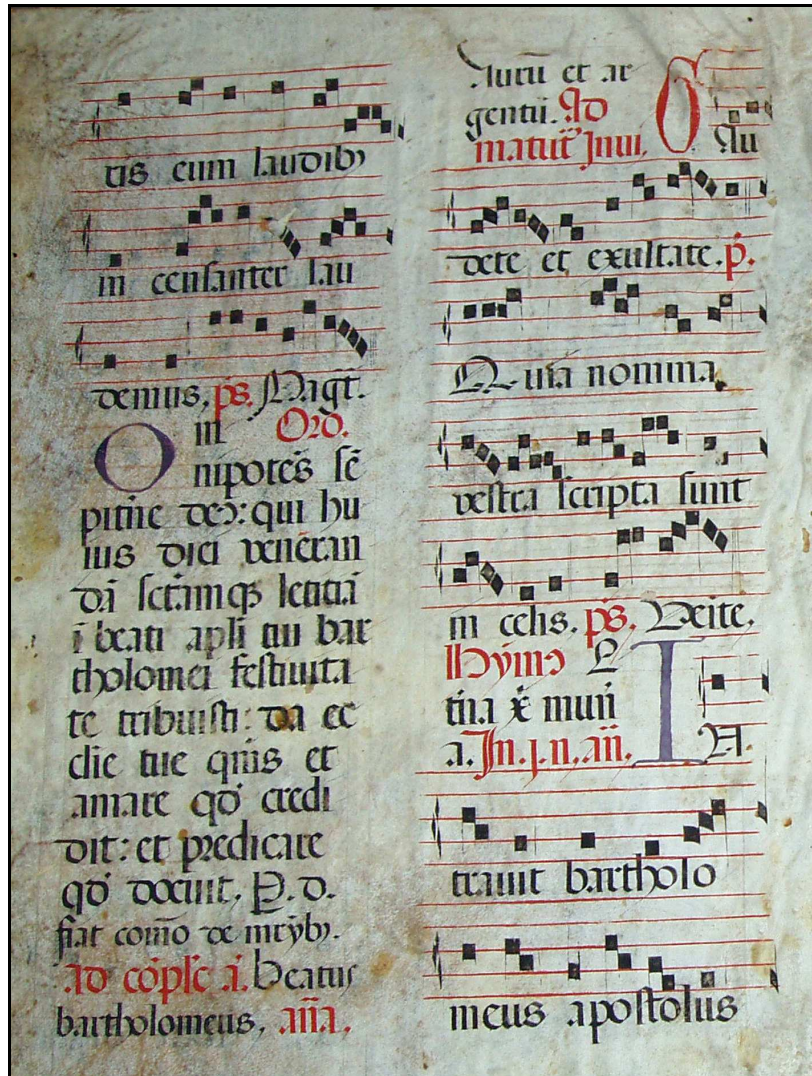 tis cum laudibꝫ
in cessanter lau
demus. p̄s. Magt̄.
Om Oro.
nipotēs sē
pitn̄e deꝰ: qui hu
ius diei veneran
dā sc̄tāmqꝫ leticiā
ī beati apl̄i tui bar
tholomei festiuita
te tribuisti: da ec
clie tue qm̄s et
amare qd̄ credi
dit: et predicare
qd̄ docuit. P. d.
fiat com̄o de mr̄ybꝫ.
ad cōplc̄ a. beatus
bartholomeus. an̄a.
Aurū et ar
gentū. Ad
matut̄ Inui. GAu
dete et exultate. p̄.
Quia nomina
vestra scripta sunt
in celis. p̄s. Veite.
Hȳmꝰ L
tīa xē mun
a. In. j. n. an̄. IN
trauit bartholo
meus apostolus